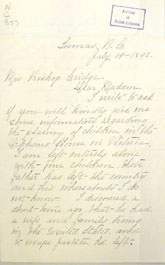 N
C
B77
Duncan, B.C.
July 19th 1895.
Mrs Bishop Cridge.
Dear Madam
I write to ask
if you will kindly give me
some information regarding
the placing of children in the
Orphans Home in Victoria.
I am left entirely alone
with five children. Their
father has left the country
and his whereabouts I do
not know. I discovered a
short time ago that he had
a wife and family living
in the United States, and
to escape justice he left.